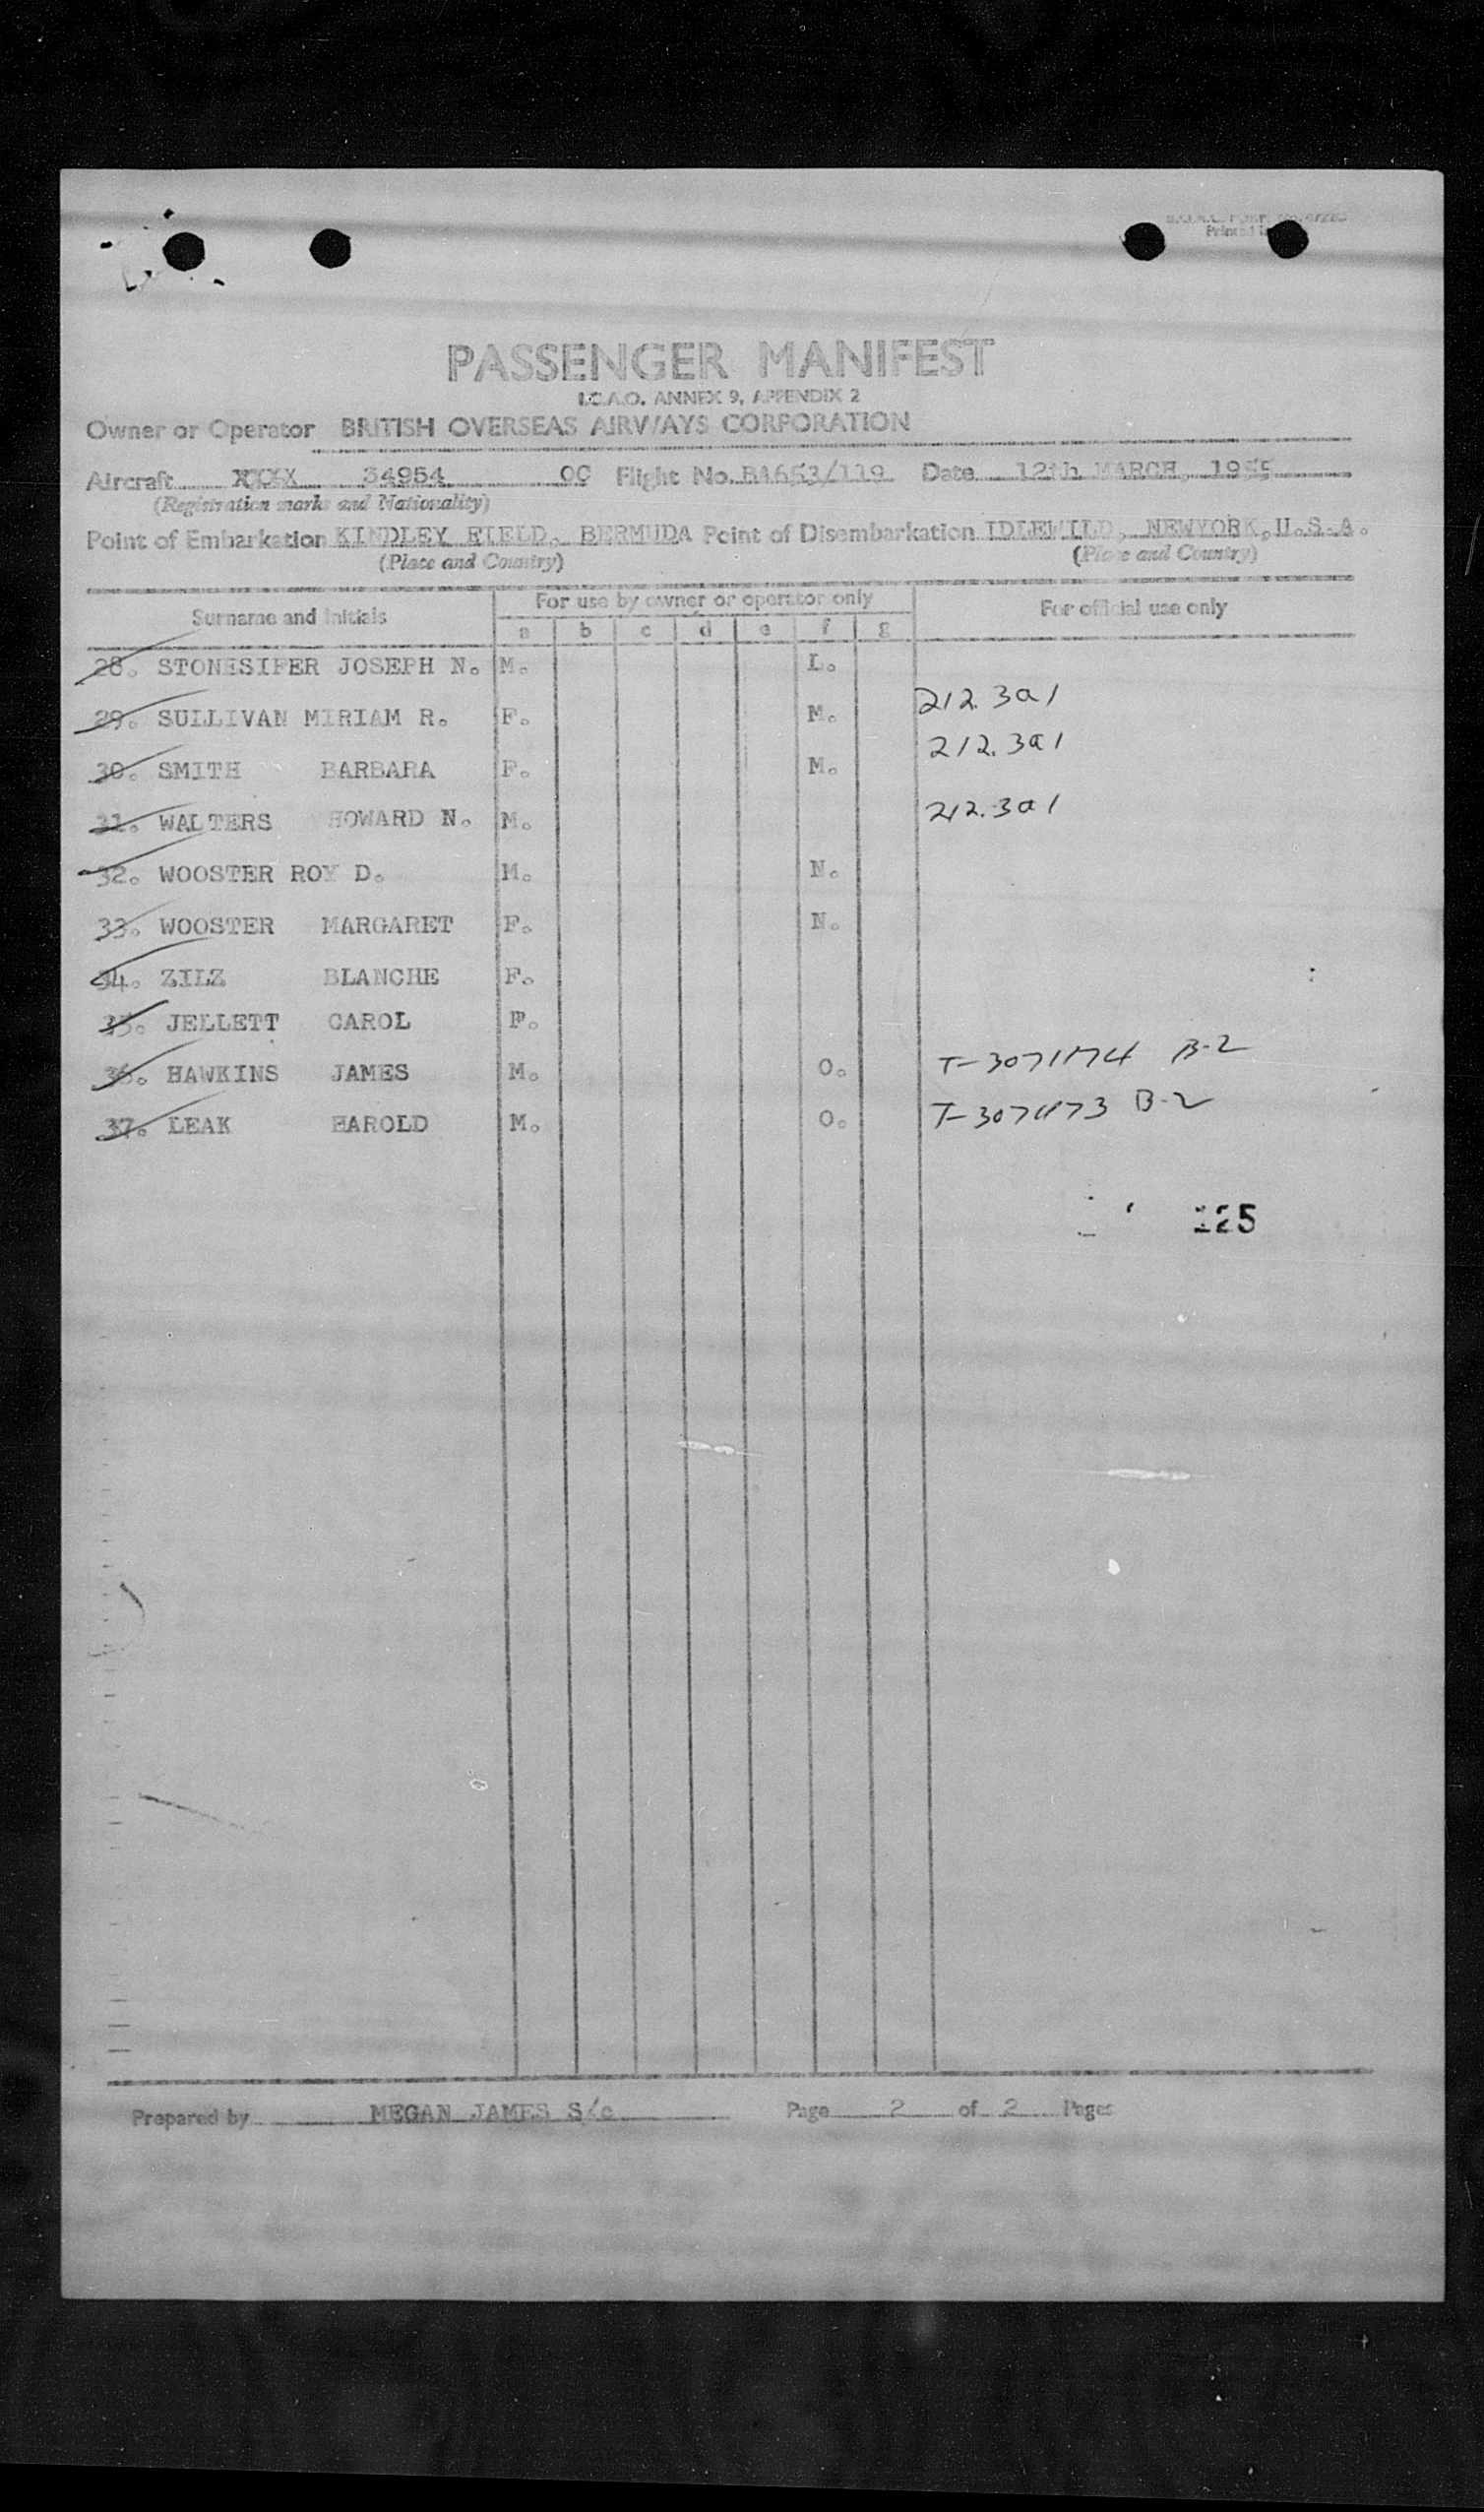 PASSENGER MANIFEST
I.C.A.O. ANNEX 9, APPENDIX 2
Owner or Operator BRITISH OVERSEAS AIRWAYS CORPORATION
Aircraft XXXX 34954 OC Flight No. BA653/119 Date 12th MARCH, 1955
(Registration marks and Nationality)
Point of Embarkation KINDLEY FIELD, BERMUDA Point of Disembarkation IDLEWILD, NEWYORK, U.S.A.
(Place and Country) (Place and Country)
Surname and Initials For use by owner or operator only For official use only
a b c d e f g
28. STONESIFER JOSEPH N. M. L.
29. SULLIVAN MIRIAM R. F. M. 212.3a1
30. SMITH BARBARA F. M. 212.3a1
31. WALTERS HOWARD N. M. 212.3a1
32. WOOSTER ROY D. M. N.
33. WOOSTER MARGARET F. N.
34. ZILZ BLANCHE F.
35. JELLETT CAROL F.
36. HAWKINS JAMES M. O. T-3071174 B-2
37. LEAK HAROLD M. O. T-3071173 B-2
125
Prepared by MEGAN JAMES S/c Page 2 of 2 Pages